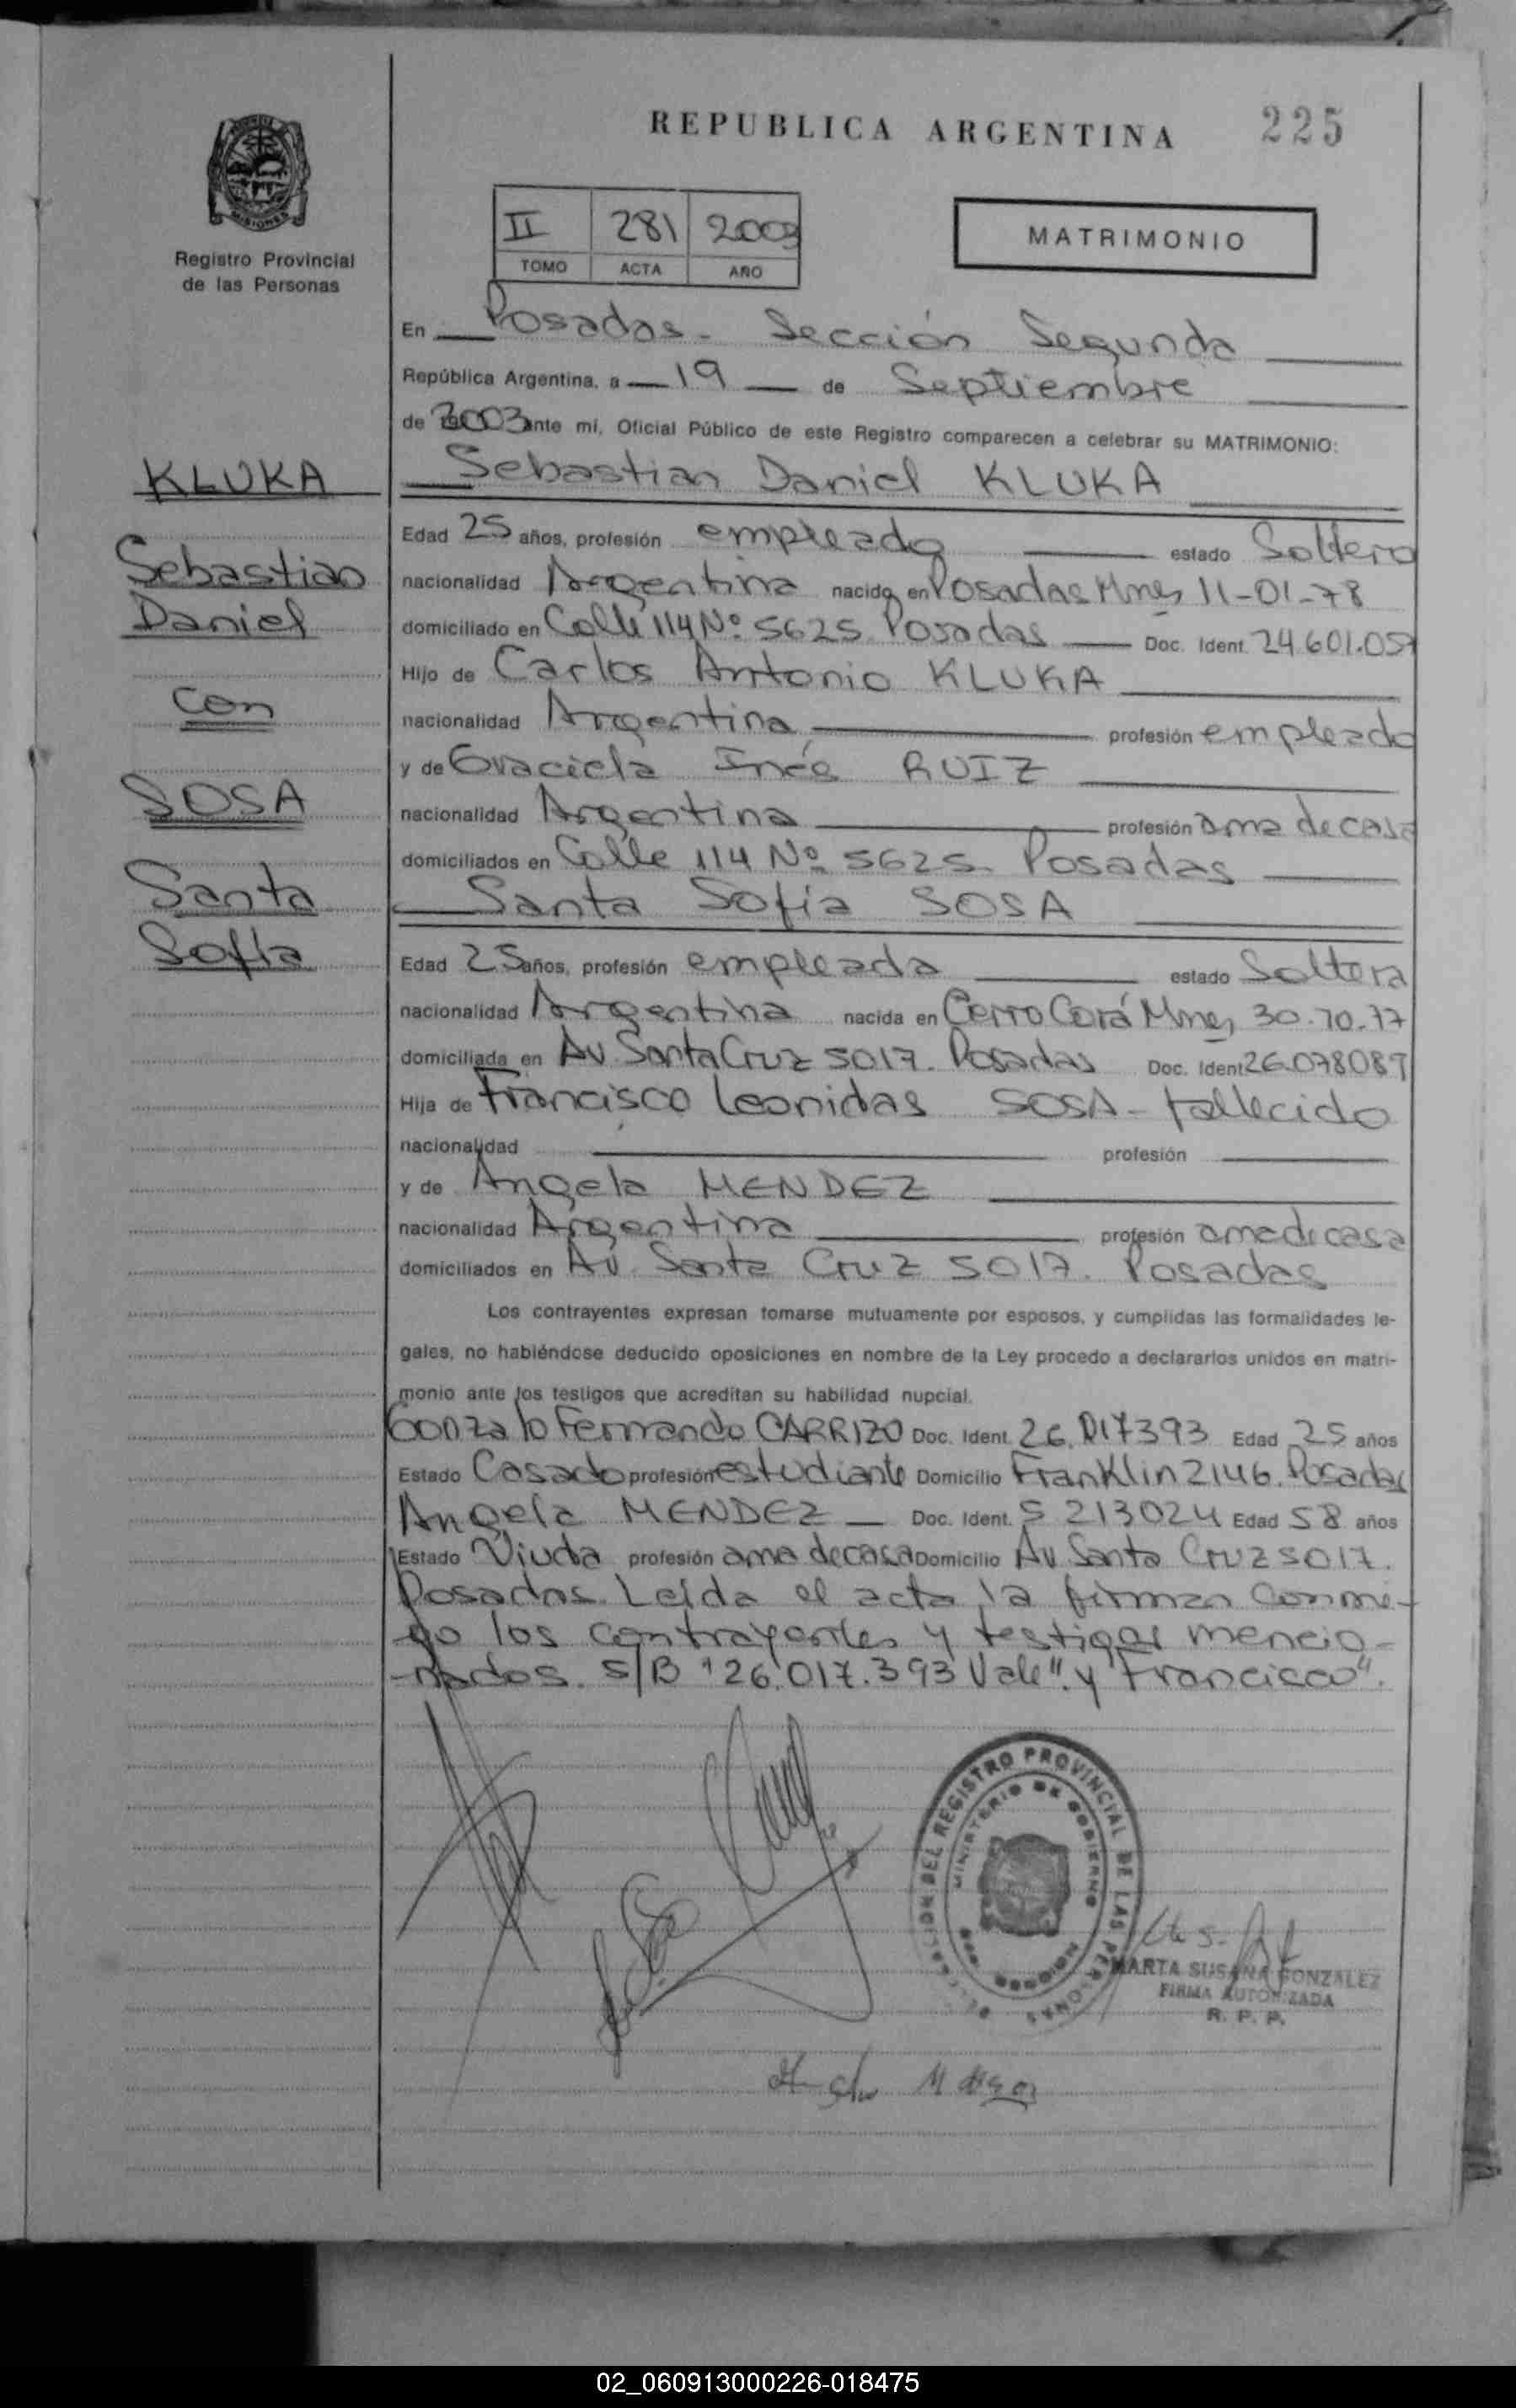 REPUBLICA ARGENTINA 225
MISIONES
Registro Provincial
de las Personas
II 281 2003
TOMO ACTA AÑO
MATRIMONIO
En Posadas - Sección Segunda
República Argentina, a 19 de Septiembre
de 2003 ante mí, Oficial Público de este Registro comparecen a celebrar su MATRIMONIO:
KLUKA
Sebastian
Daniel
con
SOSA
Santa
Sofía
Sebastian Daniel KLUKA
Edad 25 años, profesión empleado estado Soltero
nacionalidad Argentina nacido en Posadas Mnes 11-01-78
domiciliado en Calle 114 Nº 5625 Posadas Doc. Ident. 24.601.057
Hijo de Carlos Antonio KLUKA
nacionalidad Argentina profesión empleado
y de Graciela Inés RUIZ
nacionalidad Argentina profesión ama de casa
domiciliados en Calle 114 Nº 5625 Posadas
Santa Sofía SOSA
Edad 25 años, profesión empleada estado Soltera
nacionalidad Argentina nacida en Cerro Corá Mnes, 30.10.77
domiciliada en Av. Santa Cruz 5017. Posadas Doc. Ident 26.078087
Hija de Francisco Leonidas SOSA - fallecido
nacionalidad profesión
y de Angela MENDEZ
nacionalidad Argentina profesión ama de casa
domiciliados en Av. Santa Cruz 5017. Posadas
Los contrayentes expresan tomarse mutuamente por esposos, y cumplidas las formalidades le-
gales, no habiéndose deducido oposiciones en nombre de la Ley procedo a declararlos unidos en matri-
monio ante los testigos que acreditan su habilidad nupcial.
Gonzalo Fernando CARRIZO Doc. Ident. 26.017393 Edad 25 años
Estado Casado profesión estudiante Domicilio Franklin 2146. Posadas
Angela MENDEZ Doc. Ident. 5 213024 Edad 58 años
Estado Viuda profesión ama de casa Domicilio Av Santa Cruz 5017.
Posadas. Leída el acta la firman conmi-
go los contrayentes y testigos mencio-
nados. S/B "26.017.393 Vale" y "Francisco".
DELEGACION DEL REGISTRO PROVINCIAL DE LAS PERSONAS
MINISTERIO DE GOBIERNO
MISIONES
MARTA SUSANA GONZALEZ
FIRMA AUTORIZADA
R. P. P.
02_060913000226-018475